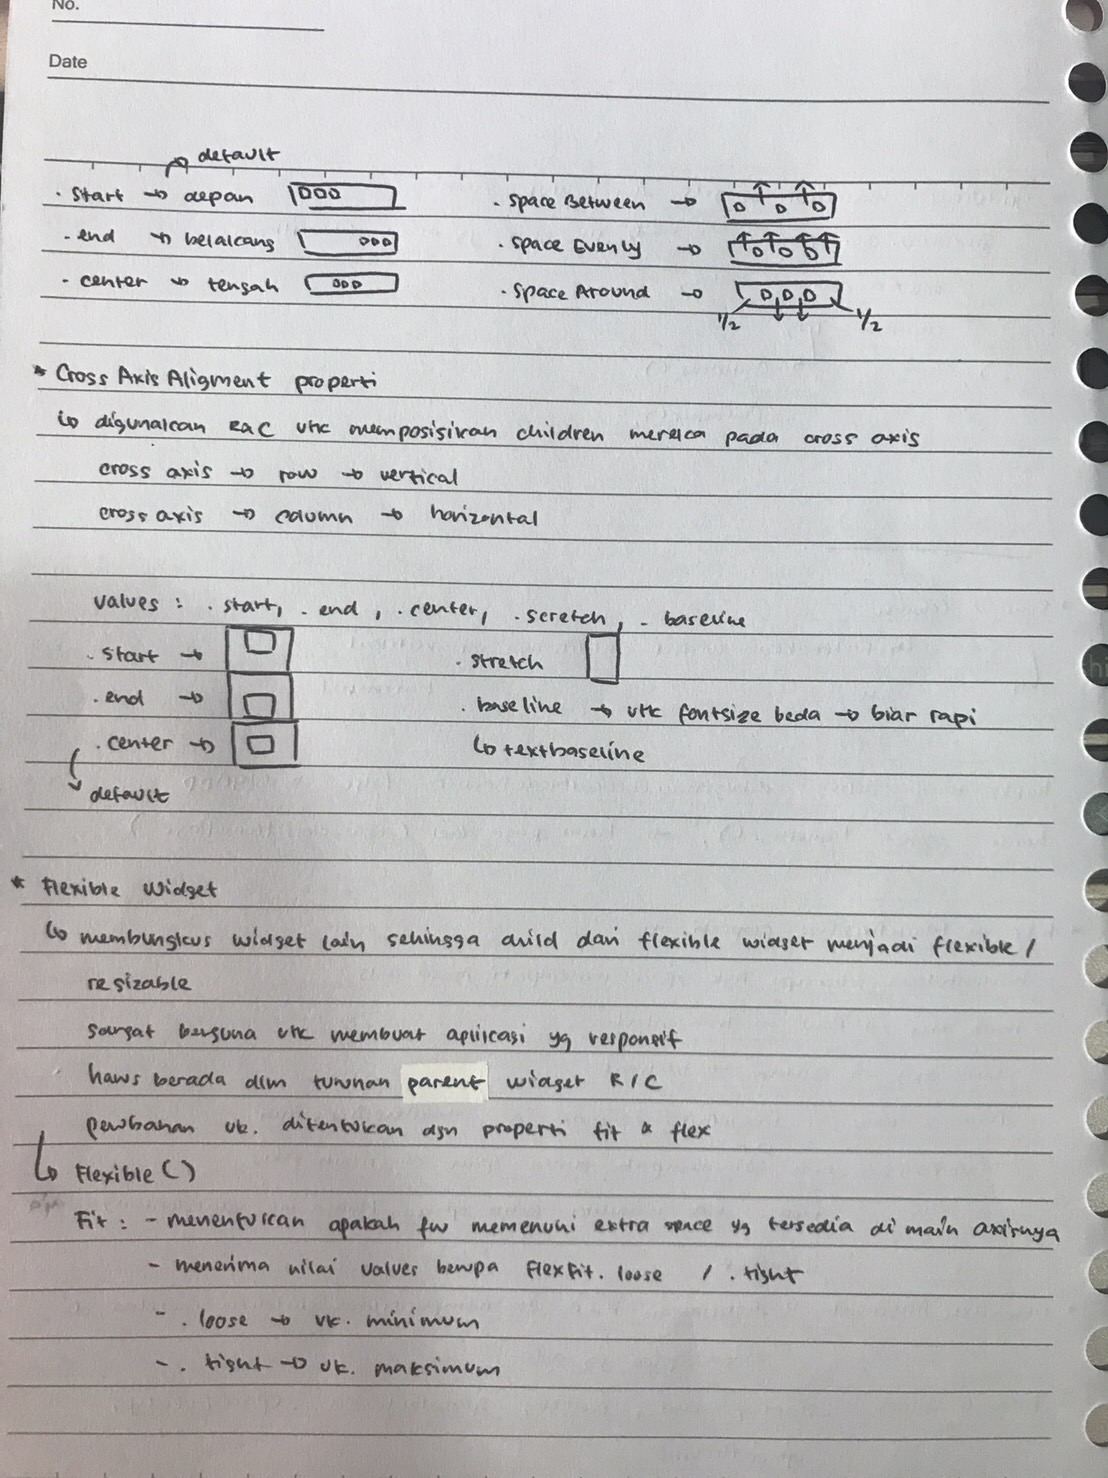 No.
Date
default
. Start → depan
. Space Between →
. end → belakang
. Space Evenly →
. center → tengah
. Space Around →
1/2 1/2
* Cross Axis Aligment properti
↳ digunakan R&C utk memposisikan children mereka pada cross axis
cross axis → row → vertical
cross axis → column → horizontal
values : . start, . end , . center, . scretch , . baseline
. start →
. stretch
. end →
. baseline → utk fontsize beda → biar rapi
. center →
↳ textbaseline
default
* Flexible Widget
↳ membungkus widget lain sehingga child dari flexible widget menjadi flexible /
resizable
sangat berguna utk membuat aplikasi yg responsif
harus berada dlm turunan parent widget R/C
perubahan uk. ditentukan dgn properti fit & flex
↳ Flexible ( )
Fit : - menentukan apakah fw memenuhi extra space yg tersedia di main axisnya
- menerima nilai values berupa FlexFit. loose / . tight
- . loose → uk. minimum
- . tight → uk. maksimum